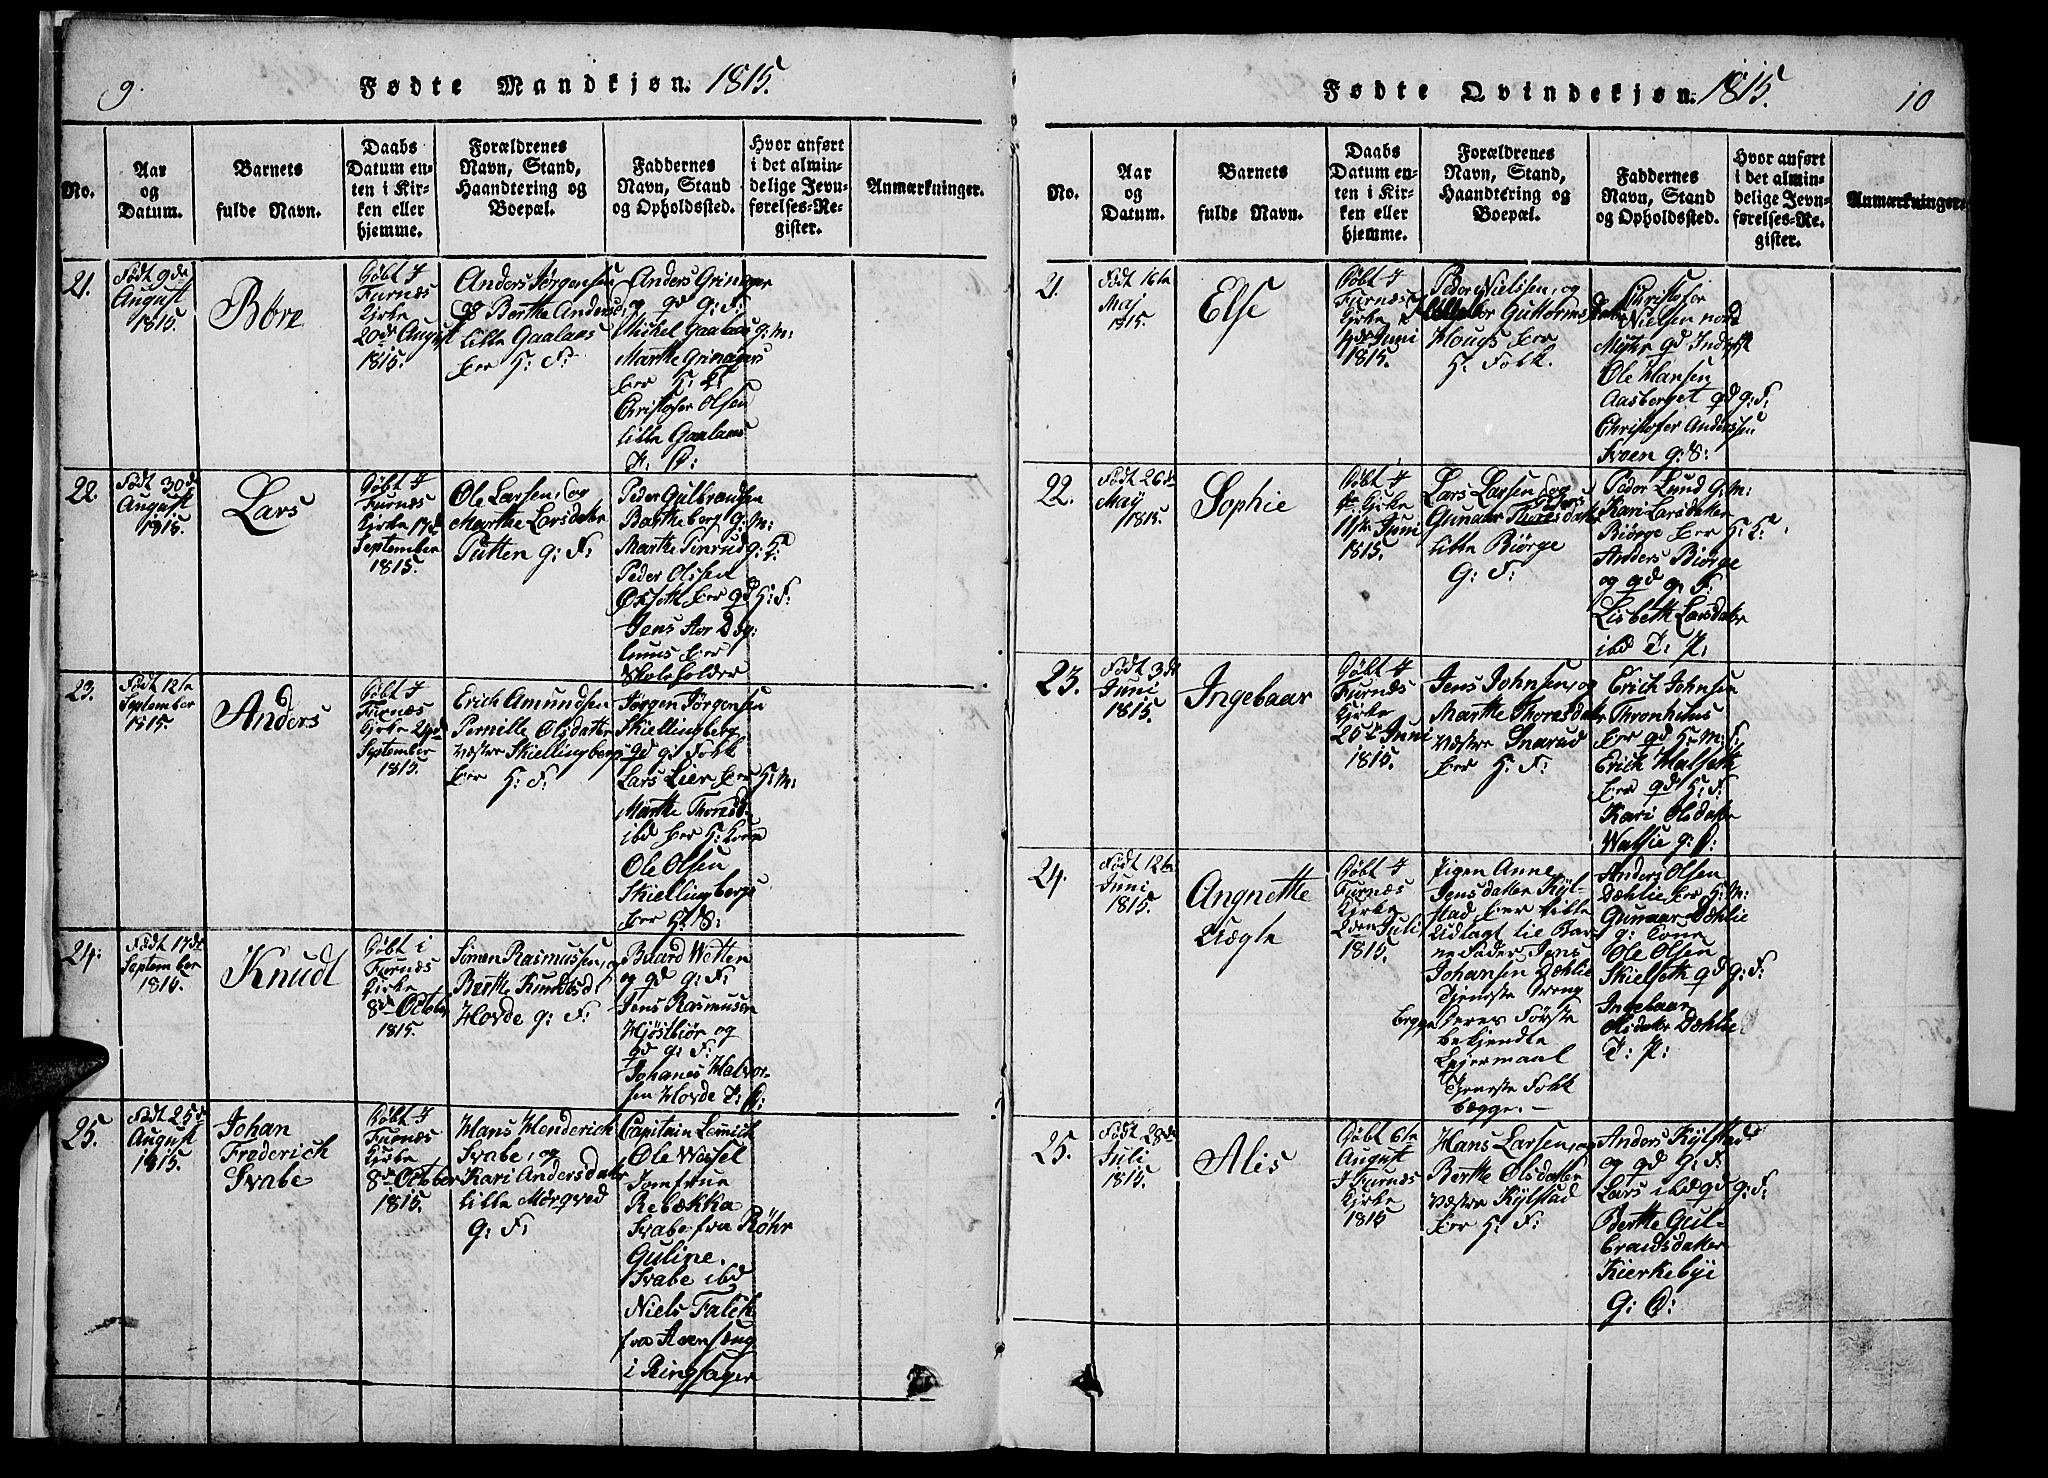 9.
Fødte Mandkjøn. 1815.
No.
Aar
og
Datum.
Barnets
fulde Navn.
Daabs
Datum en-
ten i Kir-
ken eller
hjemme.
Forældrenes
Navn, Stand,
Haandtering og
Boepæl.
Faddernes
Navn, Stand
og Opholdssted.
Hvor anført
i det almin-
delige Jevn-
førelses-Re-
gister.
Anmærkninger.
21.
Født 9de
August
1815.
Børe
Døbt I
Furnæs
Kirke
20de August
1815.
Anders Jørgensen
og Berthe Andersd:
lille Gaalaas
Eier H: F:
Anders Grinager
og qd g: F:
Michel Gaalaas g: M:
Marthe Grinagers
Eier H: K:
Christofer Olsen
lille Gaalaas
22.
Født 30de
August
1815.
Lars
Døbt I
Furnæs
Kirke 17de
September
1815.
Ole Larsen, og
Marthe Larsdater
Putten g: F:
Peder Gulbrandsen
Bartheberg g: M:
Marthe Tinrud g: K:
Peder Olssen
Øxseth Eier qd H: F:
Jens Stor Dæg:
linus Eier
Skoleholder
23.
Født 12te
September
1815.
Anders
Døbt I
Furnæs
Kirke 24de
September
1815.
Erich Amundsen
Pernille Olsdater
Væstre Skiellingberg
Eier H: F:
Jørgen Jørgensen
Skiellingberg
qd g: Folk
Lars Lier Eier H: M:
Marthe Thoresd:
ibd Eier H: Kone
Ole Olsen
Skiellingberg
Eier H: S:
24:
Født 17de
September
1815.
Knudt
Døbt i
Furnæs
Kirke
8de October
1815.
Simen Rasmussen, og
Berthe Knudtsd:
Hovde g: F:
Baard Wetten
og qd g: F:
Jens Rasmusen
Hjøstbiør og
qd g: F:
Johanes Halvor-
sen Hovde
25.
Født 25de
August
1815.
Johan
Frederich
Svabe
Døbt I
Furnæs
Kirke
8de October
1815.
Hans Henderich
Svabe, og
Kari Andersdater
lille Mørqved
g: F:
Capitain Lemich
Ole Wessel
Jomfrue
Rebækka
Svabe fra Røhr
Guline
Svabe ibd
Niels Falch
fra Steenseng
i Ringsager
Fødte Qvindekjøn. 1815.
10
No.
Aar
og
Datum.
Barnets
fulde Navn.
Daabs
Datum en-
ten i Kir-
ken eller
hjemme.
Forældrenes
Navn, Stand,
Haandtering og
Boepæl.
Faddernes
Navn, Stand
og Opholdssted.
Hvor anført
i det almin-
delige Jevn-
førelses-Re-
gister.
Anmærkninger.
21.
Født 16te
Maj
1815.
Else
Døbt I
Furnæs
Kirke
4de Juni
1815.
Peder Nielsen, og
Guttormsdater
Hougs Eier
H: Folk.
Christofer
Nielsen nord
Myhr qd Inderst
Ole Hansen
Aasberget qd g: F:
Christofer Anderssen
Svoen g: S:
22.
Født 26de
Maÿ
1815.
Sophie
Døbt I
Kirke
11te Juni
1815.
Lars Larsen, og
Gunaar Larsdater
lille Biørge
G: F:
Peder Lund g: M:
Kari Larsdater
Biørge Eier H: K:
Anders Biørge
og qd g: F:
Lisbeth Larsdater
ibd I: P:
23.
Født 3de
Juni
1815.
Ingebaar
Døbt I
Furnæs
Kirke
25de Juni
1815.
Jens Johnsen, og
Marthe Thoresdater
Væstre Snarud
Eier H: F:
Erich Johnsen
Thronhiems
Eier qd H: M: F:
Erich Halseth
Eier qd H: F:
Kari Olsdater
Walsie
24.
Født 12te
Juni
1815.
Angnethe
Uægte
Døbt I
Furnæs
Kirke
2den Juli
1815.
Pigen Anne
Jensdatter Kÿl-
stad Eier lille
Udlagt til Bar-
ne Fader Jens
Johansen Dæhlie
Tjeneste Dreng
begge deres Første
bekjendte
Lejermaal
Tjeneste Folk
bægge. —
Anders Olsen
Dæhlie Eier H: M:
Gunaar Dæhlie
g: Cone
Ole Olsen
Skielseth qd g: F:
Ingebaar
Olsdater Dæhlie
I: P:
25.
Født 28de
Juli
1815.
Alis
Døbt 6te
August
I Furnæs
Kirke
1815
Hans Larsen, og
Berthe Olsdatter
Væstre Kÿlstad
Eier H: F:
Anders Kÿlstad
og qd g: F:
Lars ibd qd g: F:
Berthe Gul-
brandsdatter
Kierkebÿe